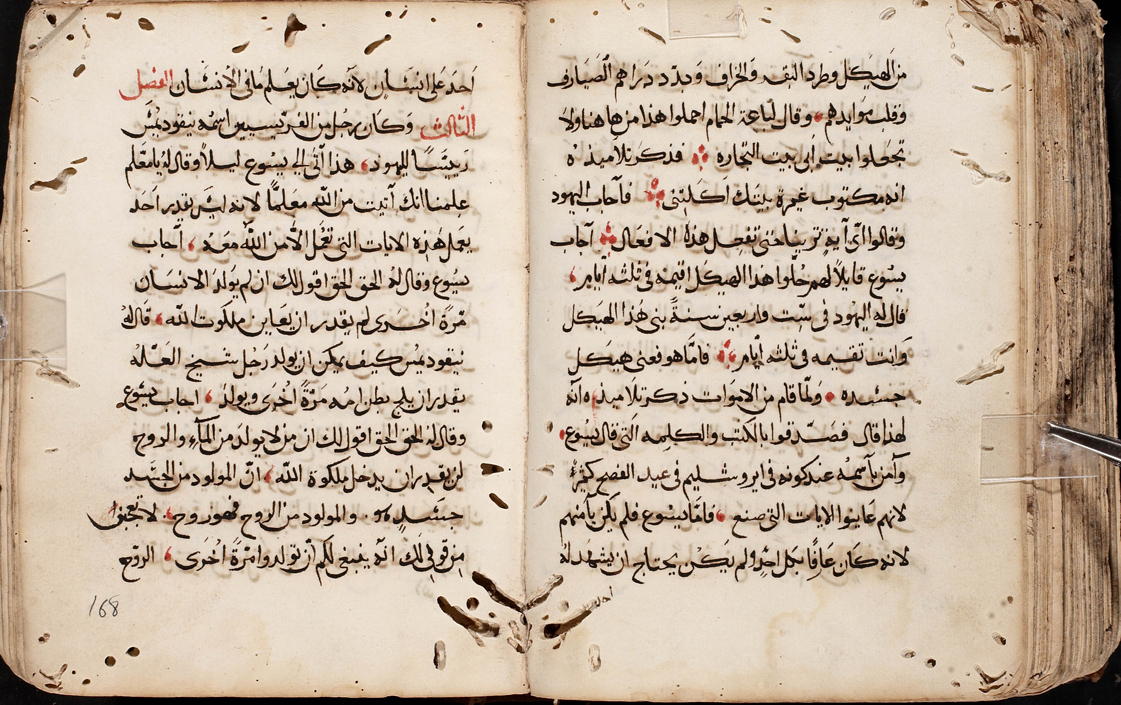 من الهيكل وطرد البقر والخراف وبدد دراهم الصيارف
وقلب موايدهم وقال لباعة الحمام احملوا هذا من هاهنا ولا
تجعلوا بيت ابى بيت التجاره فذكر تلاميذه
انه مكتوب غيرة بيتك اكلتنى فاجاب اليهود
وقالوا اى آية ترينا حتى تفعل هذه الافعال آجاب
يسوع قايلاً لهم حلوا هذا الهيكل اقيمه فى ثلثه ايام
قال له اليهود فى ست واربعين سنةً بنى هذا الهيكل
وانت تقيمه فى ثلثه أيام فامّا هو فعنى هيكل
جسده ولمّا قام من الاموات ذكر تلاميذه انّه
لهذا قال فصدقوا بالكتب والكلمه التى قال يسوع
وآمن بآسمه عند كونه فى ايروشليم فى عيد الفصح كثيرة
لانهم عاينوا الايات التى صنع فامّا يسوع فلم يكن يامنهم
لانه كان عارفًا بكل احدٍ ولم يكن يحتاج ان يشهد له
احد
احد على انسان لانه كان يعلم ما فى الانسان الفصل
الثالث وكان رجل من الفريسيين اسمه نيقوديمس
رييسًا لليهود هذا آتى الى يسوع ليلاً وقال له يا معلم
علمنا انك آتيت من الله معلمًا لانه ليس يقدر احد
يعمل هذه الايات التى تعمل الا من الله معه آجاب
يسوع وقال له الحق الحق اقول لك ان لم يولد الانسان
مرّة اخرى لم يقدر ان يعاين ملكوت الله قال له
نيقوديمس كيف يمكن ان يولد رجل شيخ العلّه
يقدر ان يلج بطن امه مرّةً اخرى ويولد اجاب يسوع
وقال له الحق الحق اقول لك ان من لا يولد من المآء والروح
لن يقدر ان يدخل ملكوة الله انّ المولود من الجسد
جسدٍ هو والمولود من الروح فهو روح لا تعجبن
من قولى لك انه ينبغى لكم ان تولدوا مرّة اخرى الروح
168